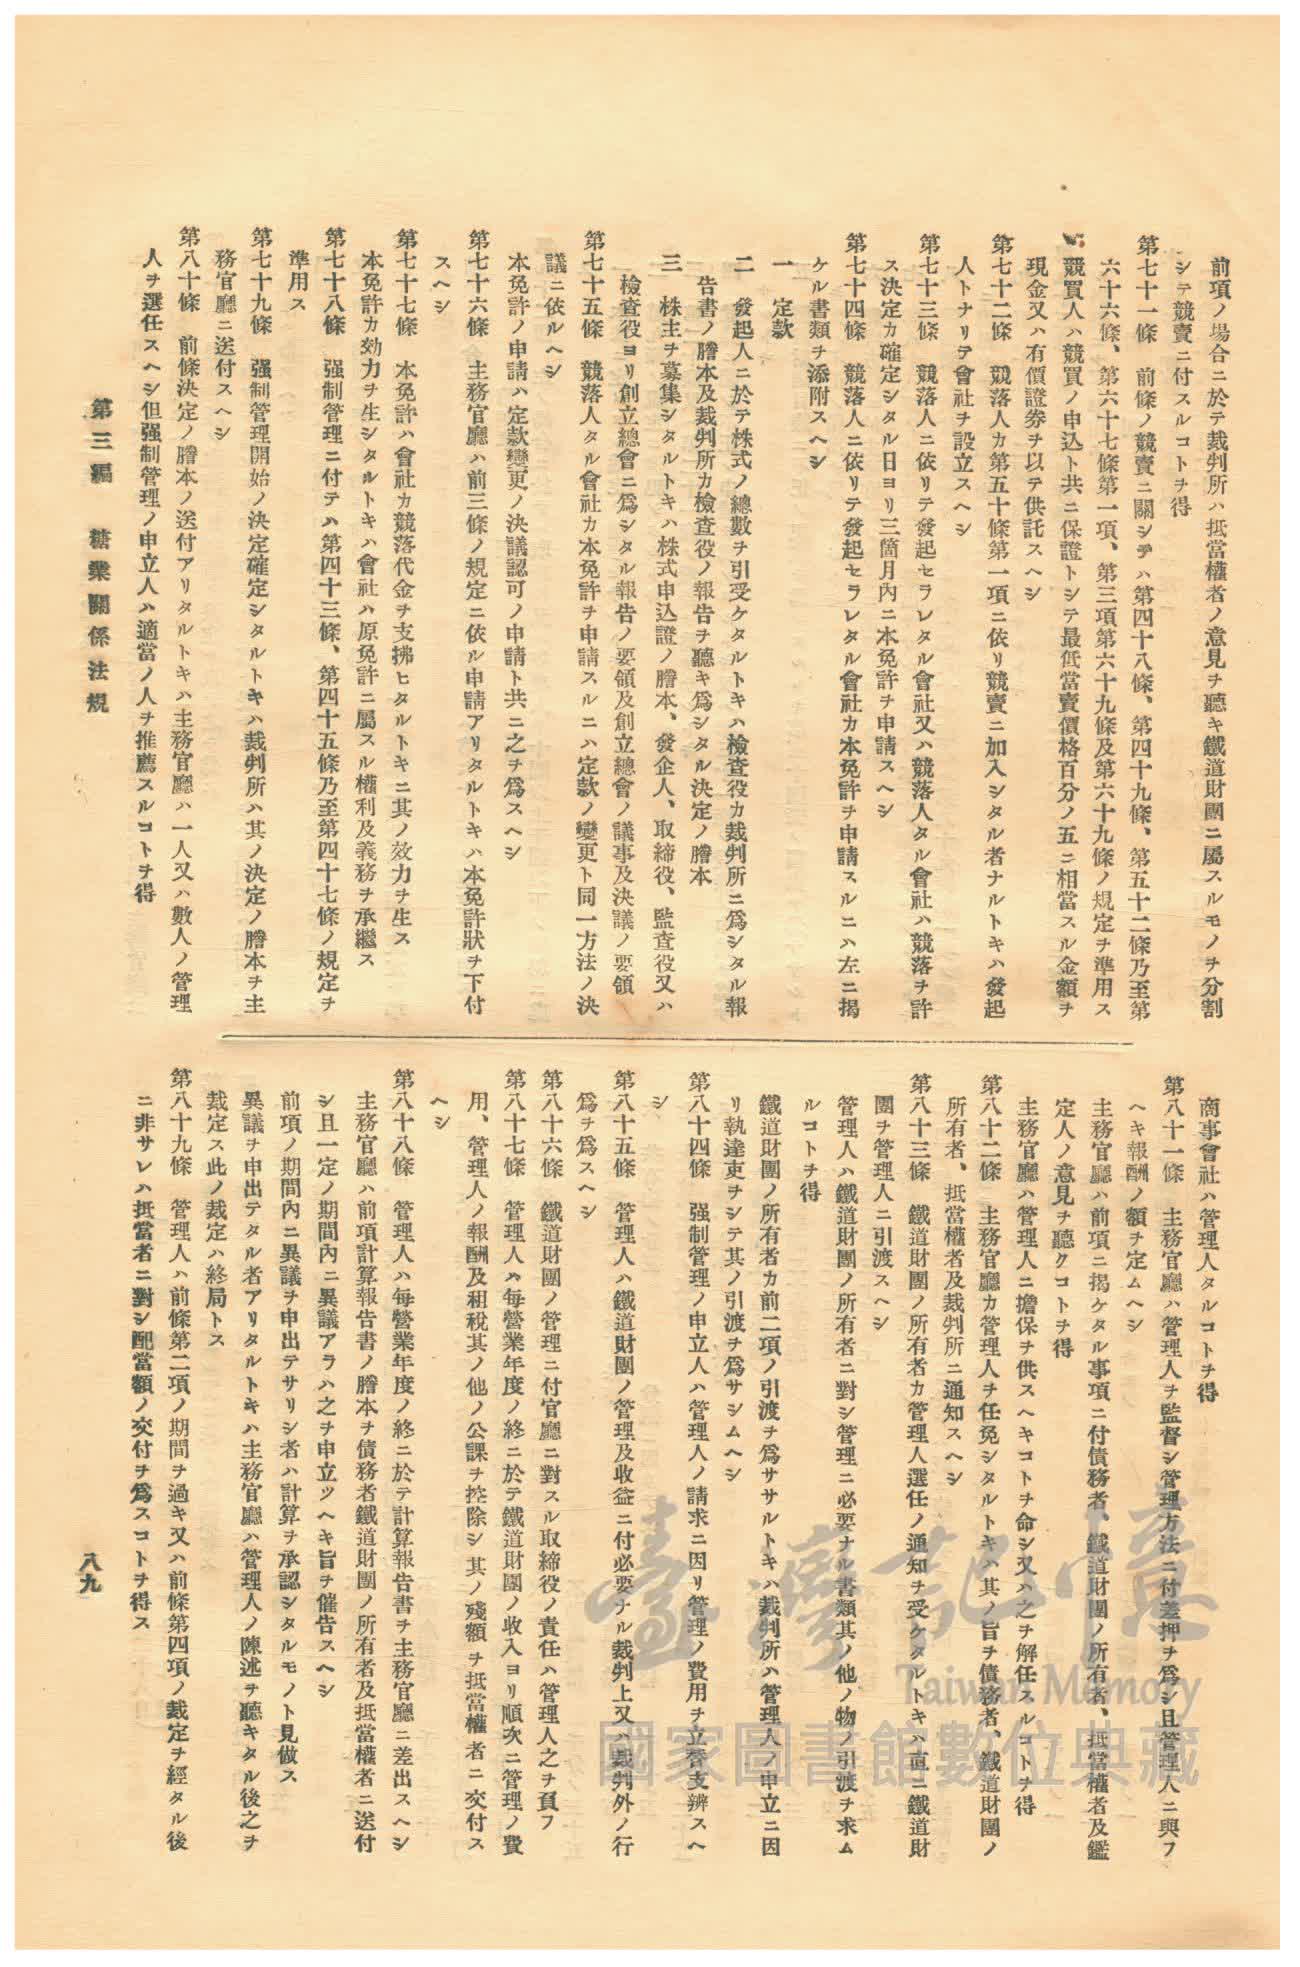 前項ノ場合ニ於テ裁判所ハ抵當權者ノ意見ヲ聽キ鐵道財團ニ屬スルモノヲ分割
シテ競賣ニ付スルコトヲ得
第七十一條　前條ノ競賣ニ關シテハ第四十八條、第四十九條、第五十二條乃至第
六十六條、第六十七條第一項、第三項第六十九條及第六十九條ノ規定ヲ準用ス
競買人ハ競買ノ申込ト共ニ保證トシテ最低當賣價格百分ノ五ニ相當スル金額ヲ
現金又ハ有價證券ヲ以テ供託スヘシ
第七十二條　競落人カ第五十條第一項ニ依リ競賣ニ加入シタル者ナルトキハ發起
人トナリテ會社ヲ設立スヘシ
第七十三條　競落人ニ依リテ發起セラレタル會社又ハ競落人タル會社ハ競落ヲ許
ス決定カ確定シタル日ヨリ三箇月內ニ本免許ヲ申請スヘシ
第七十四條　競落人ニ依リテ發起セラレタル會社カ本免許ヲ申請スルニハ左ニ揭
ケル書類ヲ添附スヘシ
一　定款
二　發起人ニ於テ株式ノ總數ヲ引受ケタルトキハ檢查役カ裁判所ニ爲シタル報
告書ノ謄本及裁判所カ檢查役ノ報告ヲ聽キ爲シタル決定ノ謄本
三　株主ヲ募集シタルトキハ株式申込證ノ謄本、發企人、取締役、監查役又ハ
檢查役ヨリ創立總會ニ爲シタル報告ノ要領及創立總會ノ議事及決議ノ要領
第七十五條　競落人タル會社カ本免許ヲ申請スルニハ定款ノ變更ト同一方法ノ決
議ニ依ルヘシ
本免許ノ申請ハ定款變更ノ決議認可ノ申請ト共ニ之ヲ爲スヘシ
第七十六條　主務官廳ハ前三條ノ規定ニ依ル申請アリタルトキハ本免許狀ヲ下付
スヘシ
第七十七條　本免許ハ會社カ競落代金ヲ支拂ヒタルトキニ其ノ效力ヲ生ス
本免許カ効力ヲ生シタルトキハ會社ハ原免許ニ屬スル權利及義務ヲ承繼ス
第七十八條　强制管理ニ付テハ第四十三條、第四十五條乃至第四十七條ノ規定ヲ
準用ス
第七十九條　强制管理開始ノ決定確定シタルトキハ裁判所ハ其ノ決定ノ謄本ヲ主
務官廳ニ送付スヘシ
第八十條　前條決定ノ謄本ノ送付アリタルトキハ主務官廳ハ一人又ハ數人ノ管理
人ヲ選任スヘシ但强制管理ノ申立人ハ適當ノ人ヲ推薦スルコトヲ得
商事會社ハ管理人タルコトヲ得
第八十一條　主務官廳ハ管理人ヲ監督シ管理方法ニ付差押ヲ爲シ且管理人ニ與フ
ヘキ報酬ノ額ヲ定ムヘシ
主務官廳ハ前項ニ揭ケタル事項ニ付債務者、鐵道財團ノ所有者、抵當權者及鑑
定人ノ意見ヲ聽クコトヲ得
主務官廳ハ管理人ニ擔保ヲ供スヘキコトヲ命シ又ハ之ヲ解任スルコトヲ得
第八十二條　主務官廳カ管理人ヲ任免シタルトキハ其ノ旨ヲ債務者、鐵道財團ノ
所有者、抵當權者及裁判所ニ通知スヘシ
第八十三條　鐵道財團ノ所有者カ管理人選任ノ通知ヲ受ケタルトキハ直ニ鐵道財
團ヲ管理人ニ引渡スヘシ
管理人ハ鐵道財團ノ所有者ニ對シ管理ニ必要ナル書類其ノ他ノ物ノ引渡ヲ求ム
ルコトヲ得
鐵道財團ノ所有者カ前二項ノ引渡ヲ爲ササルトキハ裁判所ハ管理人ノ申立ニ因
リ執達吏ヲシテ其ノ引渡ヲ爲サシムヘシ
第八十四條　强制管理ノ申立人ハ管理人ノ請求ニ因リ管理ノ費用ヲ立替支辨スヘ
シ
第八十五條　管理人ハ鐵道財團ノ管理及收益ニ付必要ナル裁判上又ハ裁判外ノ行
爲ヲ爲スヘシ
第八十六條　鐵道財團ノ管理ニ付官廳ニ對スル取締役ノ責任ハ管理人之ヲ負フ
第八十七條　管理人ハ每營業年度ノ終ニ於テ鐵道財團ノ收入ヨリ順次ニ管理ノ費
用、管理人ノ報酬及租稅其ノ他ノ公課ヲ控除シ其ノ殘額ヲ抵當權者ニ交付ス
ヘシ
第八十八條　管理人ハ每營業年度ノ終ニ於テ計算報告書ヲ主務官廳ニ差出スヘシ
主務官廳ハ前項計算報告書ノ謄本ヲ債務者鐵道財團ノ所有者及抵當權者ニ送付
シ且一定ノ期間內ニ異議アラハ之ヲ申立ツヘキ旨ヲ催告スヘシ
前項ノ期間內ニ異議ヲ申出テサリシ者ハ計算ヲ承認シタルモノト見做ス
異議ヲ申出テタル者アリタルトキハ主務官廳ハ管理人ノ陳述ヲ聽キタル後之ヲ
裁定ス此ノ裁定ハ終局トス
第八十九條　管理人ハ前條第二項ノ期間ヲ過キ又ハ前條第四項ノ裁定ヲ經タル後
ニ非サレハ抵當者ニ對シ配當額ノ交付ヲ爲スコトヲ得ス
第三編　糖業關係法規
八九
臺灣記憶
Taiwan Memory
國家圖書館數位典藏